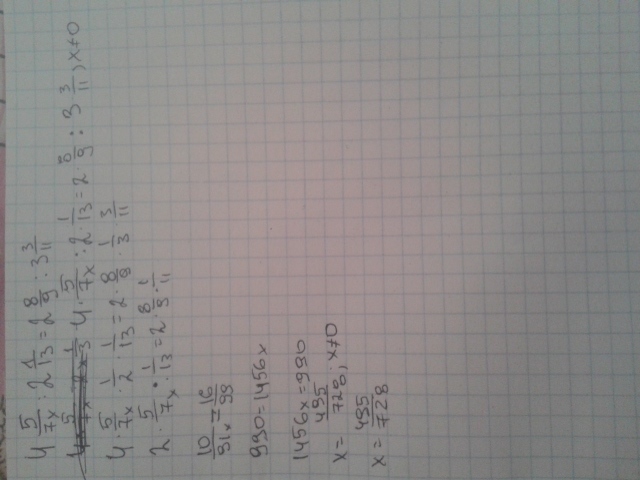 4 5/7x : 2 1/13 = 2 8/9 : 3 3/11
4 · 5/7x : 2 · 1/13 = 2 · 8/9 : 3 3/11, x≠0
4 · 5/7x · 1/2 · 1/13 = 2 · 8/9 · 1/3 · 3/11
2 · 5/7x · 1/13 = 2 · 8/9 · 1/11
10/91x = 16/99
990 = 1456x
1456x = 990
x = 495/728; x≠0
x = 495/728